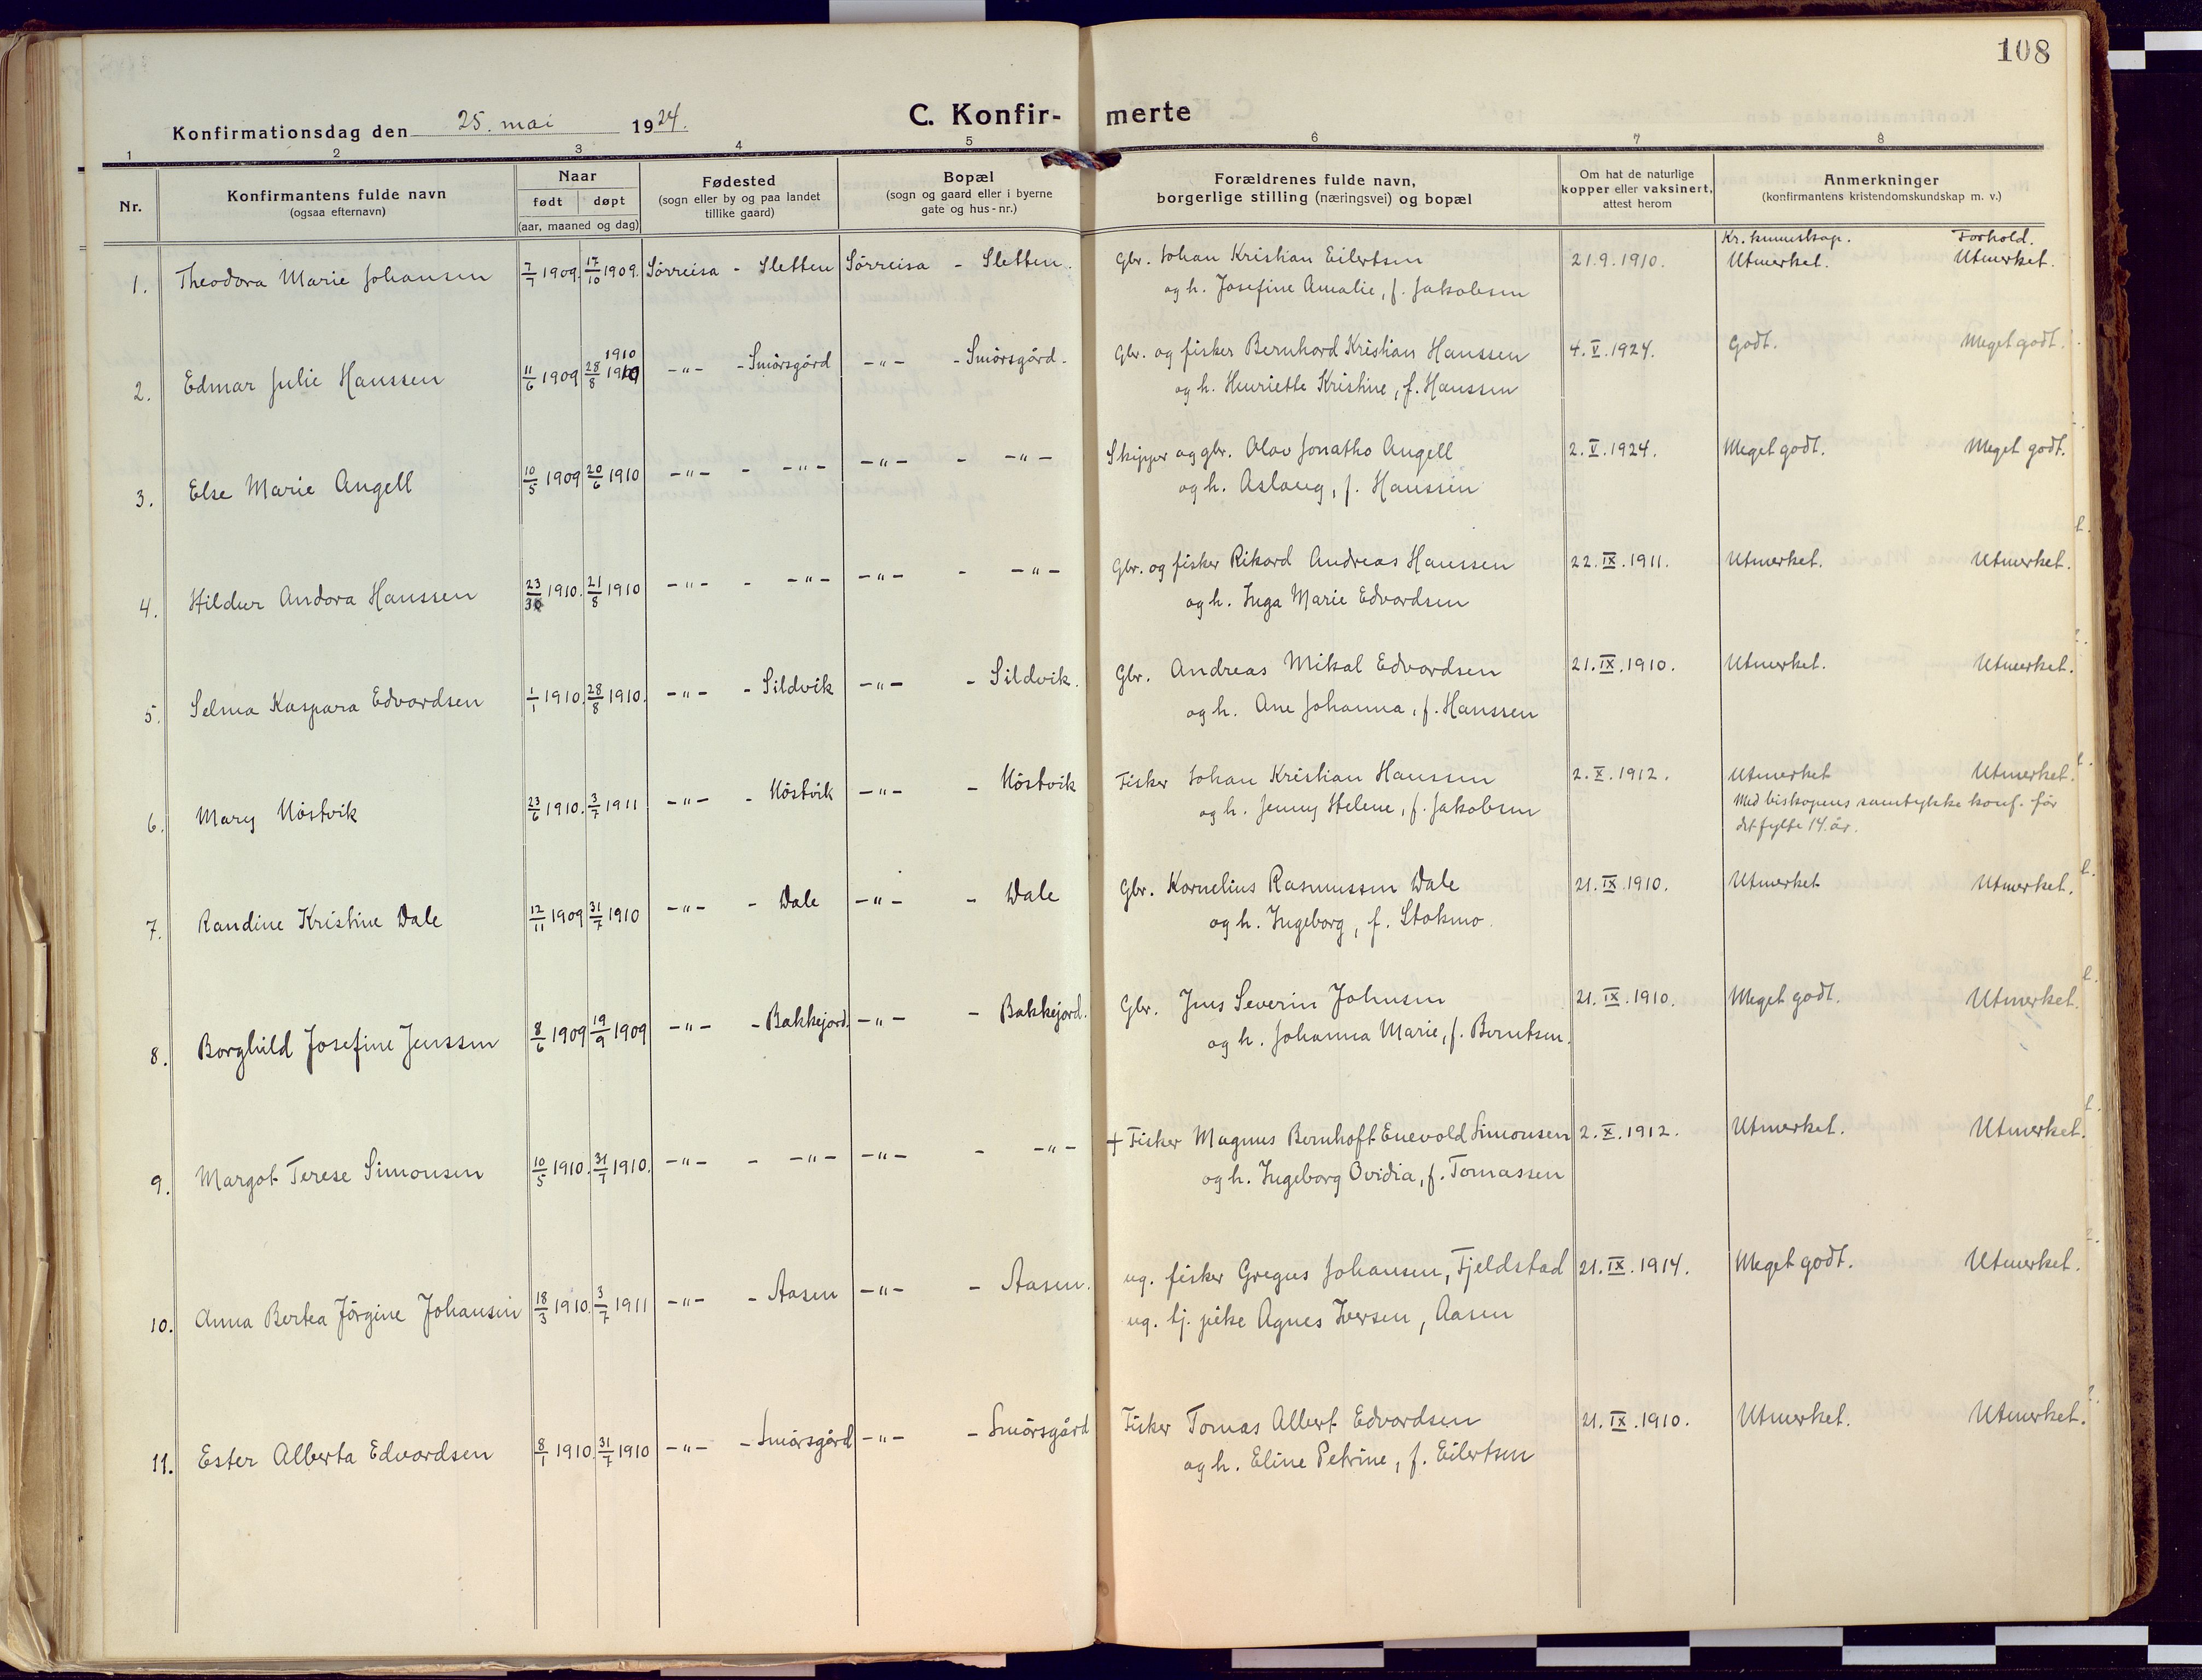 108
Konfirmationsdag den 25. mai 1924.
C. Konfir- merte
1 2 3 4 5 6 7 8
Nr.
Konfirmantens fulde navn
(ogsaa efternavn)
Naar
født døpt
(aar, maaned og dag)
Fødested
(sogn eller by og paa landet
tillike gaard)
Bopæl
(sogn og gaard eller i byerne
gate og hus-nr.)
Forældrenes fulde navn,
borgerlige stilling (næringsvei) og bopæl
Om hat de naturlige
kopper eller vaksinert,
attest herom
Anmerkninger
(konfirmantens kristendomskundskap m. v.)
Kr. kunnskap. Forhold.
1. Theodora Marie Johansen 7/7 1909. 17/10 1909. Sörreisa - Sletten Sörreisa - Sletten. Gbr. Johan Kristian Eilertsen 21.9.1910. Utmerket. Utmerket.
og h. Josefine Amalie, f. Jakobsen
1910
2. Edmar Julie Hanssen 11/6 1909 28/8 1910 -"- - Smörsgård -"- - Smörsgård. Gbr. og fisker Bernhard Kristian Hanssen 4.V.1924. Godt. Meget godt.
og h. Henriette Kristine, f. Hanssen
3. Else Marie Angell 10/5 1909 20/6 1910 -"- - -"- -"- - -"- Skipper og gbr. Olav Jonatho Angell 2.V.1924. Meget godt. Meget godt.
og h. Aslaug, f. Hanssen
4. Hildur Andora Hanssen 23/3 1910. 21/8 1910 -"- - -"- -"- - -"- Gbr. og fisker Rikard Andreas Hanssen 22.IX.1911. Utmerket. Utmerket.
og h. Inga Marie Edvardsen
5. Selma Kaspara Edvardsen 1/1 1910. 28/8 1910. -"- - Sildvik -"- - Sildvik. Gbr. Andreas Mikal Edvardsen 21.IX.1910. Utmerket. Utmerket.
og h. Ane Johanna, f. Hanssen
6. Mary Höstvik 23/6 1910. 3/7 1911 -"- - Höstvik -"- - Höstvik Fisker Johan Kristian Hanssen 2.X.1912. Utmerket Utmerket.
og h. Jenny Helene, f. Jakobsen Med biskopens samtykke konf. för
det fylte 14. år.
7. Randine Kristine Dale 12/11 1909 31/7 1910 -"- - Dale -"- - Dale Gbr. Kornelius Rasmussen Dale 21.IX.1910. Utmerket Utmerket.
og h. Ingeborg, f. Stokmo.
8. Borghild Josefine Jenssen 8/6 1909 19/9 1909 -"- - Bakkejord. -"- - Bakkejord. Gbr. Jens Severin Johnsen 21.IX.1910. Meget godt. Utmerket.
og h. Johanna Marie, f. Berntsen.
9. Margot Terese Simonsen 10/5 1910. 31/7 1910. -"- - -"- -"- - -"- + Fisker Magnus Bernhoft Enevold Simonsen 2.X.1912. Utmerket. Utmerket.
og h. Ingeborg Ovidia, f. Tomassen
10. Anna Bertea Jörgine Johansen 18/3 1910. 3/7 1911 -"- - Aasen -"- - Aasen. ug. fisker Gregus Johansen, Fjeldstad 21.IX.1914. Meget godt. Utmerket.
ug. tj. pike Agnes Iversen, Aasen
11. Ester Alberta Edvardsen 8/1 1910. 31/7 1910 -"- - Smörsgård -"- - Smörsgård Fisker Tomas Albert Edvardsen 21.IX.1910. Utmerket. Utmerket.
og h. Eline Petrine, f. Eilertsen